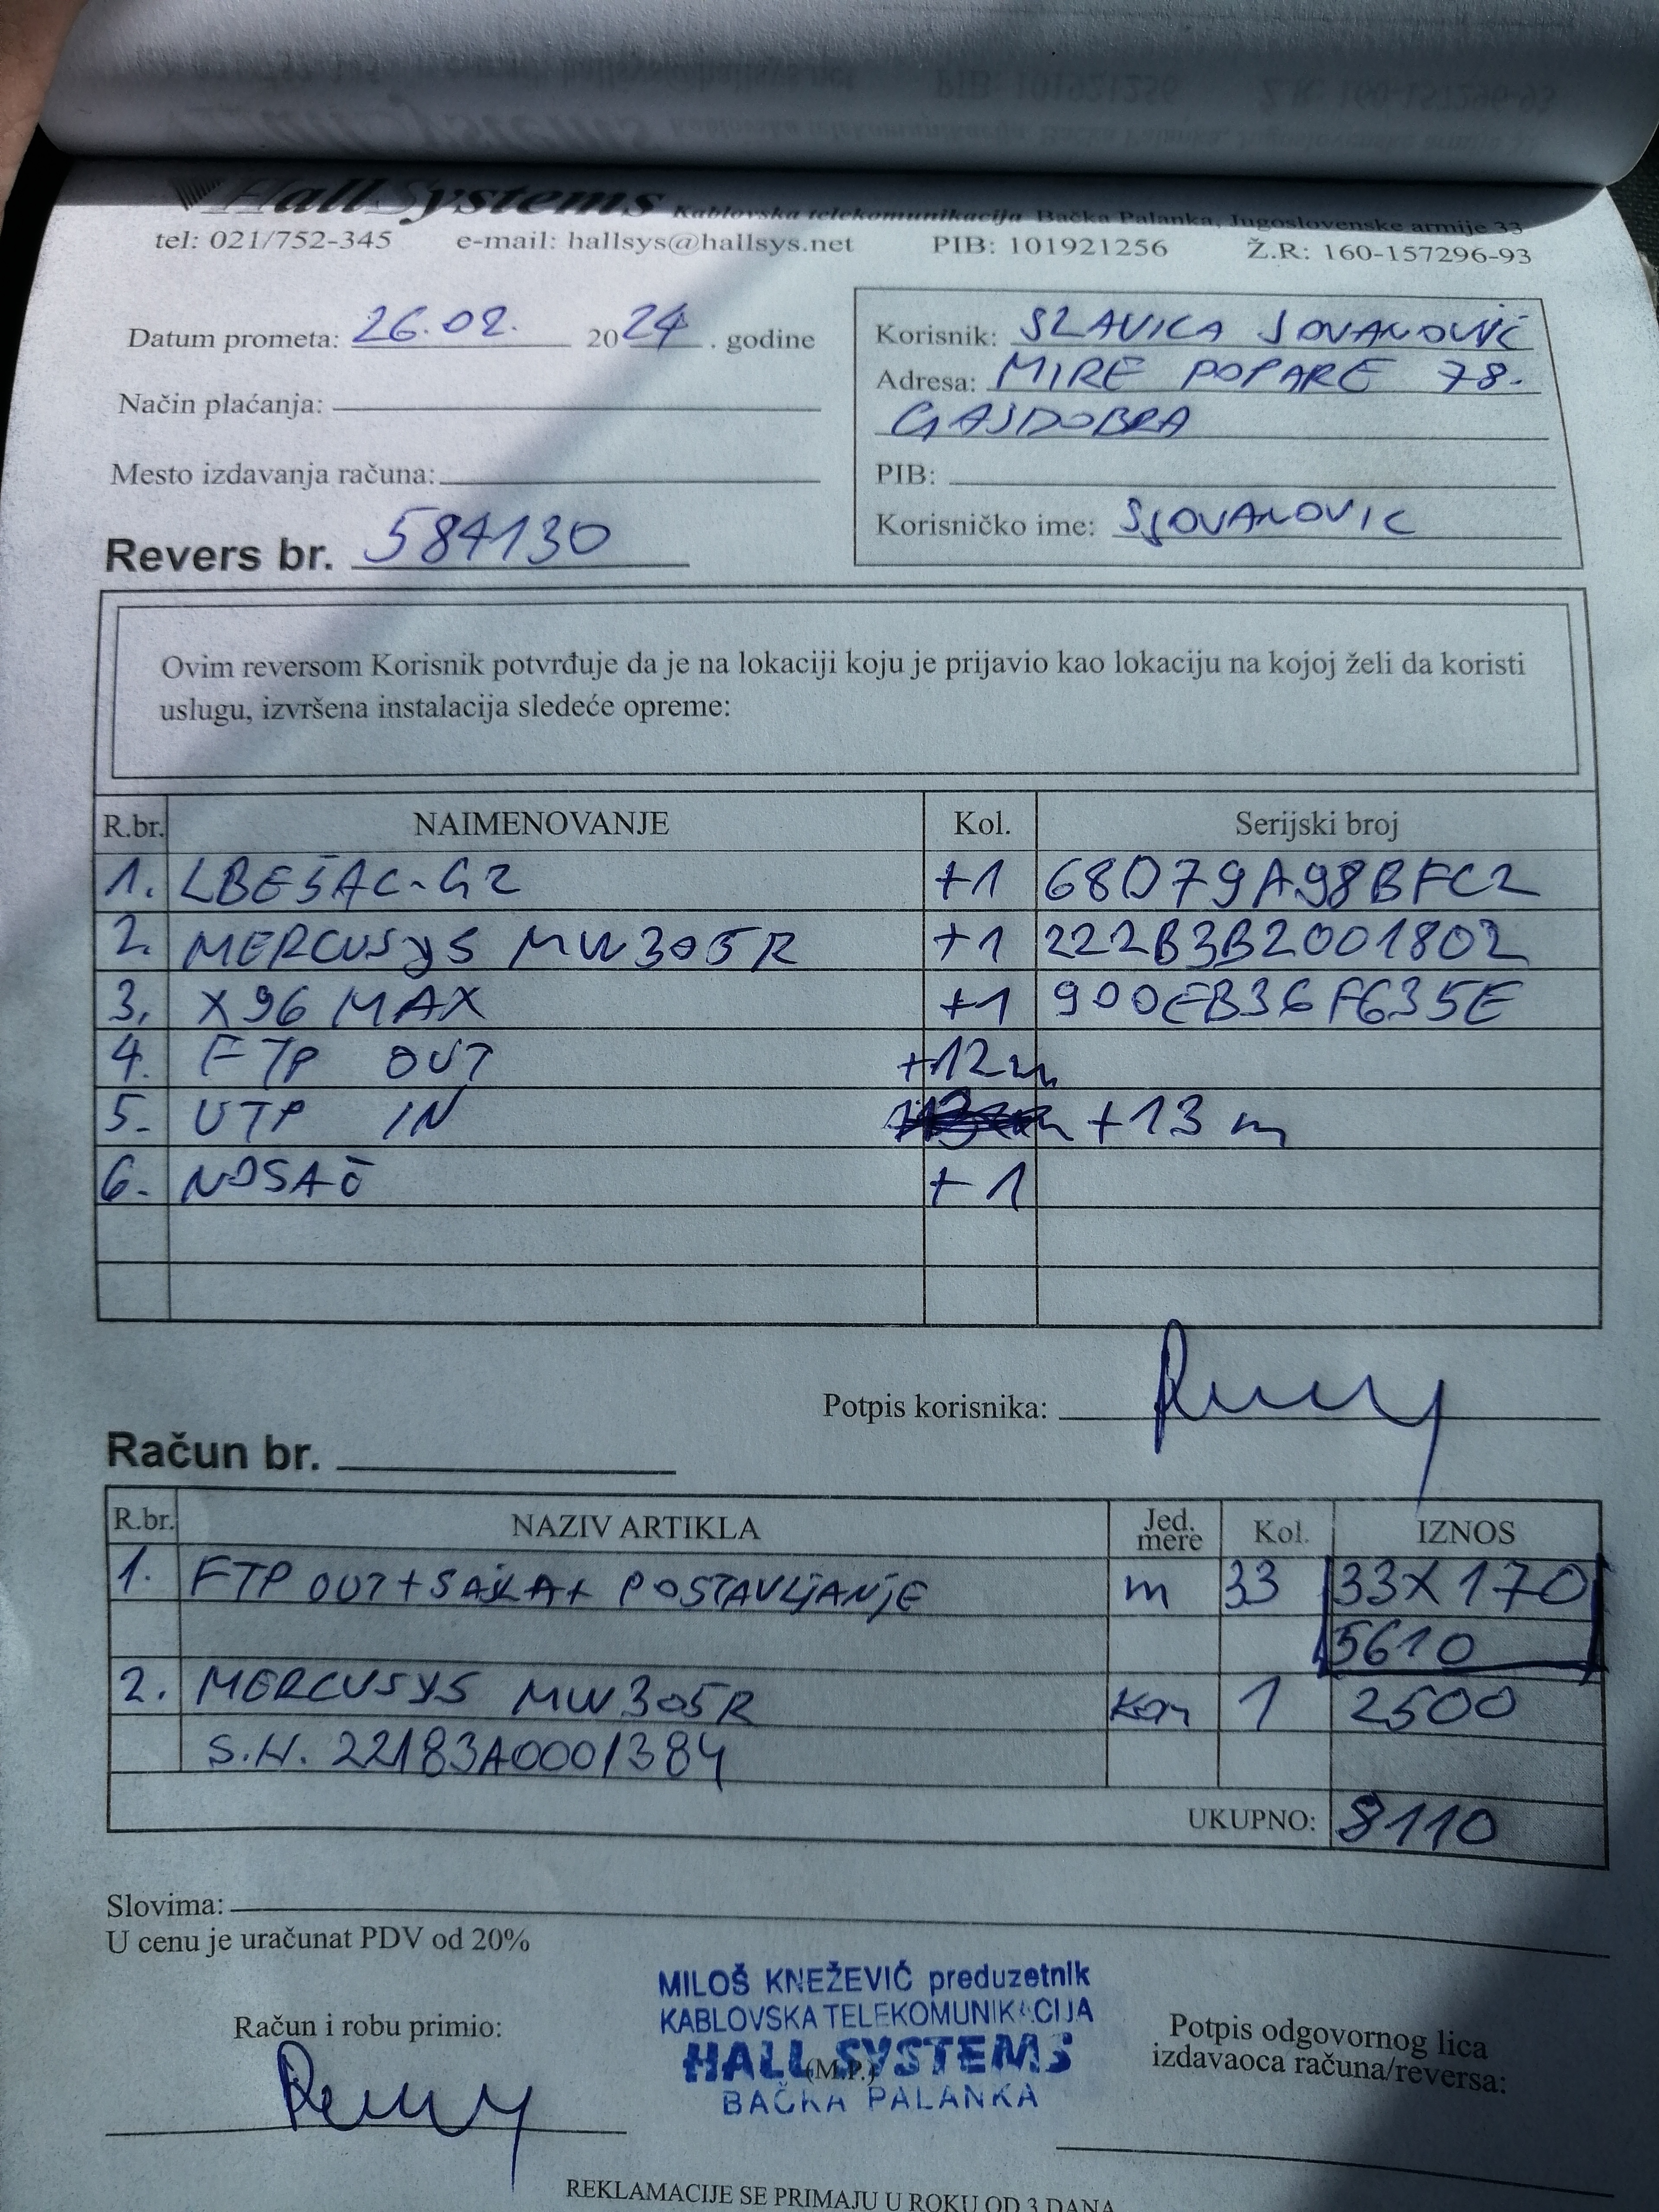 HallSystems Kablovska telekomunikacija Bačka Palanka, Jugoslovenske armije 33
tel: 021/752-345 e-mail: hallsys@hallsys.net PIB: 101921256 Ž.R: 160-157296-93
Datum prometa: 26.02. 2024. godine
Način plaćanja:
Mesto izdavanja računa:
Revers br. 584130
Korisnik: SLAVICA JOVANOVIĆ
Adresa: MIRE POPARE 78.
GAJDOBRA
PIB:
Korisničko ime: SJOVANOVIC
Ovim reversom Korisnik potvrđuje da je na lokaciji koju je prijavio kao lokaciju na kojoj želi da koristi
uslugu, izvršena instalacija sledeće opreme:
R.br. NAIMENOVANJE Kol. Serijski broj
1. LBE5AC-G2 +1 68D79A98BFC2
2. MERCUSYS MW305R +1 222B3B2001802
3. X96 MAX +1 900EB36F635E
4. FTP OUT +12m
5. UTP IN +13 m
6. NOSAČ +1
Potpis korisnika:
Račun br.
R.br. NAZIV ARTIKLA Jed. mere Kol. IZNOS
1. FTP OUT+SAJLA+ POSTAVLJANJE m 33 33X170
5610
2. MERCUSYS MW305R kom 1 2500
S.N. 22183A0001384
UKUPNO: 8110
Slovima:
U cenu je uračunat PDV od 20%
MILOŠ KNEŽEVIĆ preduzetnik
KABLOVSKA TELEKOMUNIKACIJA
HALL SYSTEMS
(M.P.)
BAČKA PALANKA
Račun i robu primio:
Potpis odgovornog lica
izdavaoca računa/reversa:
REKLAMACIJE SE PRIMAJU U ROKU OD 3 DANA